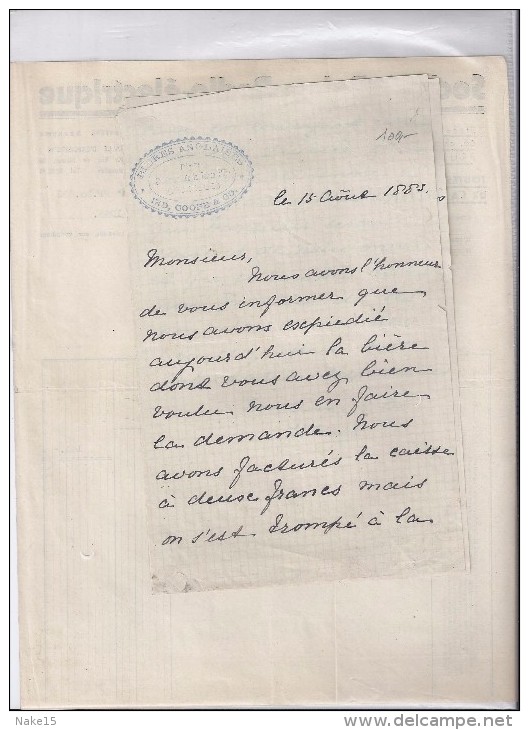 Société Radio-électrique
109-
BIÈRES ANGLAISES
IND, COOPE & CO.
le 15 Août 1883.
Monsieur,
Nous avons l'honneur
de vous informer que
nous avons expiedié
aujourd'hui la bière
dont vous avez bien
voulu nous en faire
la demande. Nous
avons facturés la caisse
à deux francs mais
on s'est trompé à la
Nake15
www.delcampe.net